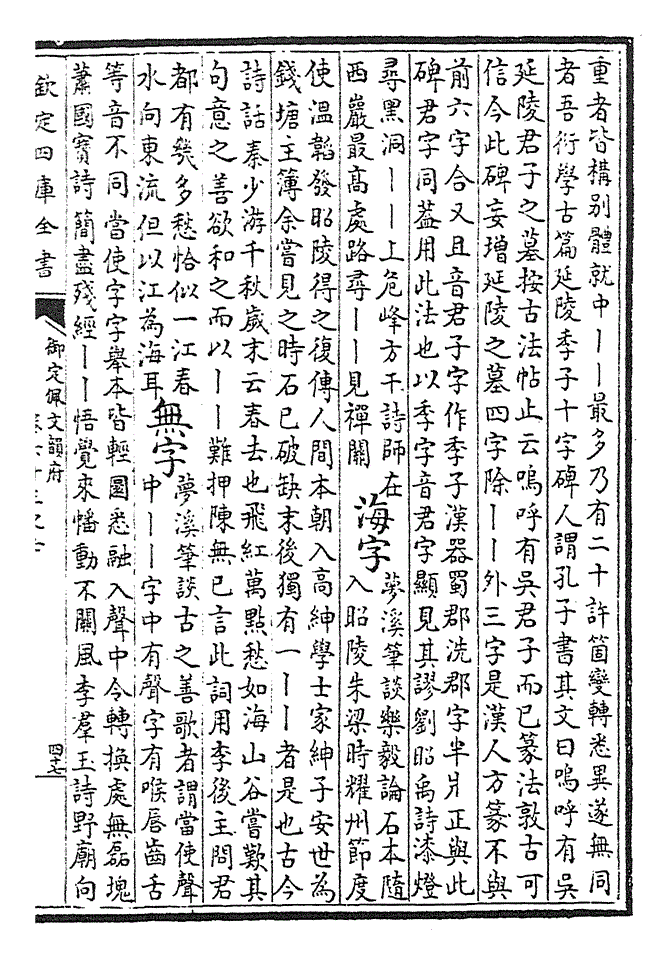 重者皆構别體就中丨丨最多乃有二十許箇變轉悉異遂無同
者吾衍學古篇延陵季子十字碑人謂孔子書其文曰嗚呼有吴
延陵君子之墓按古法帖止云嗚呼有吴君子而已篆法敦古可
信今此碑妄增延陵之墓四字除丨丨外三字是漢人方篆不與
前六字合又且音君子字作季子漢器蜀郡洗郡字半爿正與此
碑君字同葢用此法也以季字音君字顯見其謬劉昭禹詩漆燈
尋黑洞丨丨上危峰方干詩師在
西巖最高處路尋丨丨見禪關
海字
夢溪筆談樂毅論石本隨
入昭陵朱梁時耀州節度
使溫韜發昭陵得之復傳人間本朝入高紳學士家紳子安世為
錢塘主簿余嘗見之時石已破缺末後獨有一丨丨者是也古今
詩話秦少游千秋歲末云春去也飛紅萬點愁如海山谷嘗歎其
句意之善欲和之而以丨丨難押陳無已言此詞用李後主問君
都有幾多愁恰似一江春
水向東流但以江為海耳
無字
夢溪筆談古之善歌者謂當使聲
中丨丨字中有聲字有喉唇齒舌
等音不同當使字字舉本皆輕圓悉融入聲中令轉換處無磊塊
蕭國寶詩簡盡殘經丨丨悟覺來幡動不關風李羣玉詩野廟向
欽定四庫全書
御定佩文韻府
四十七